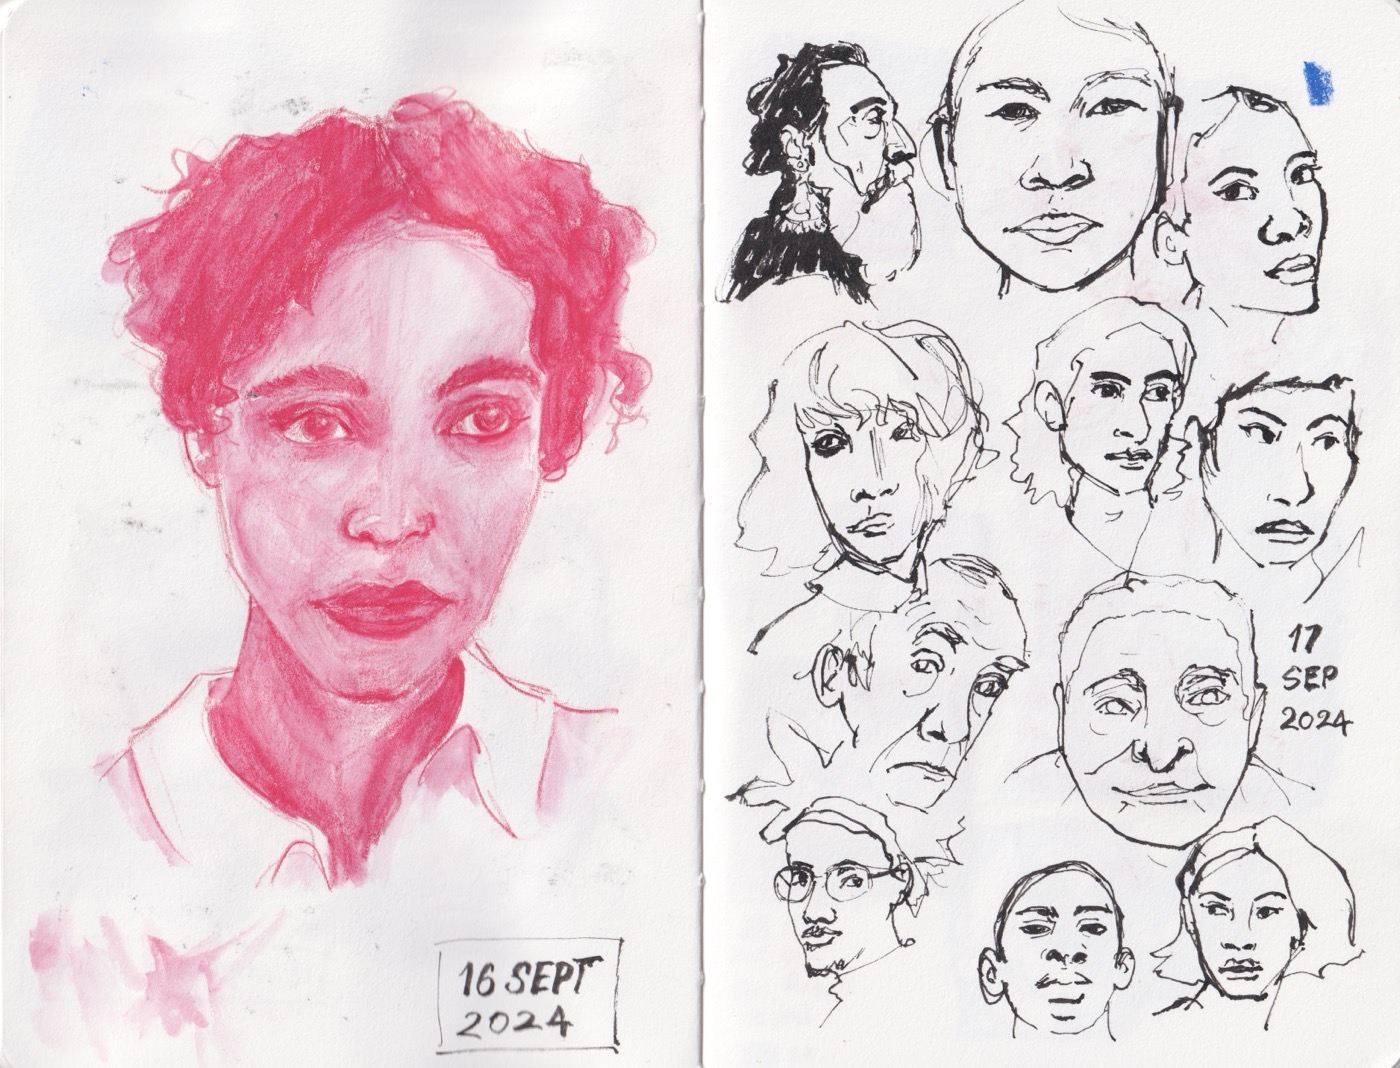 16 SEPT
2024
17
SEP
2024